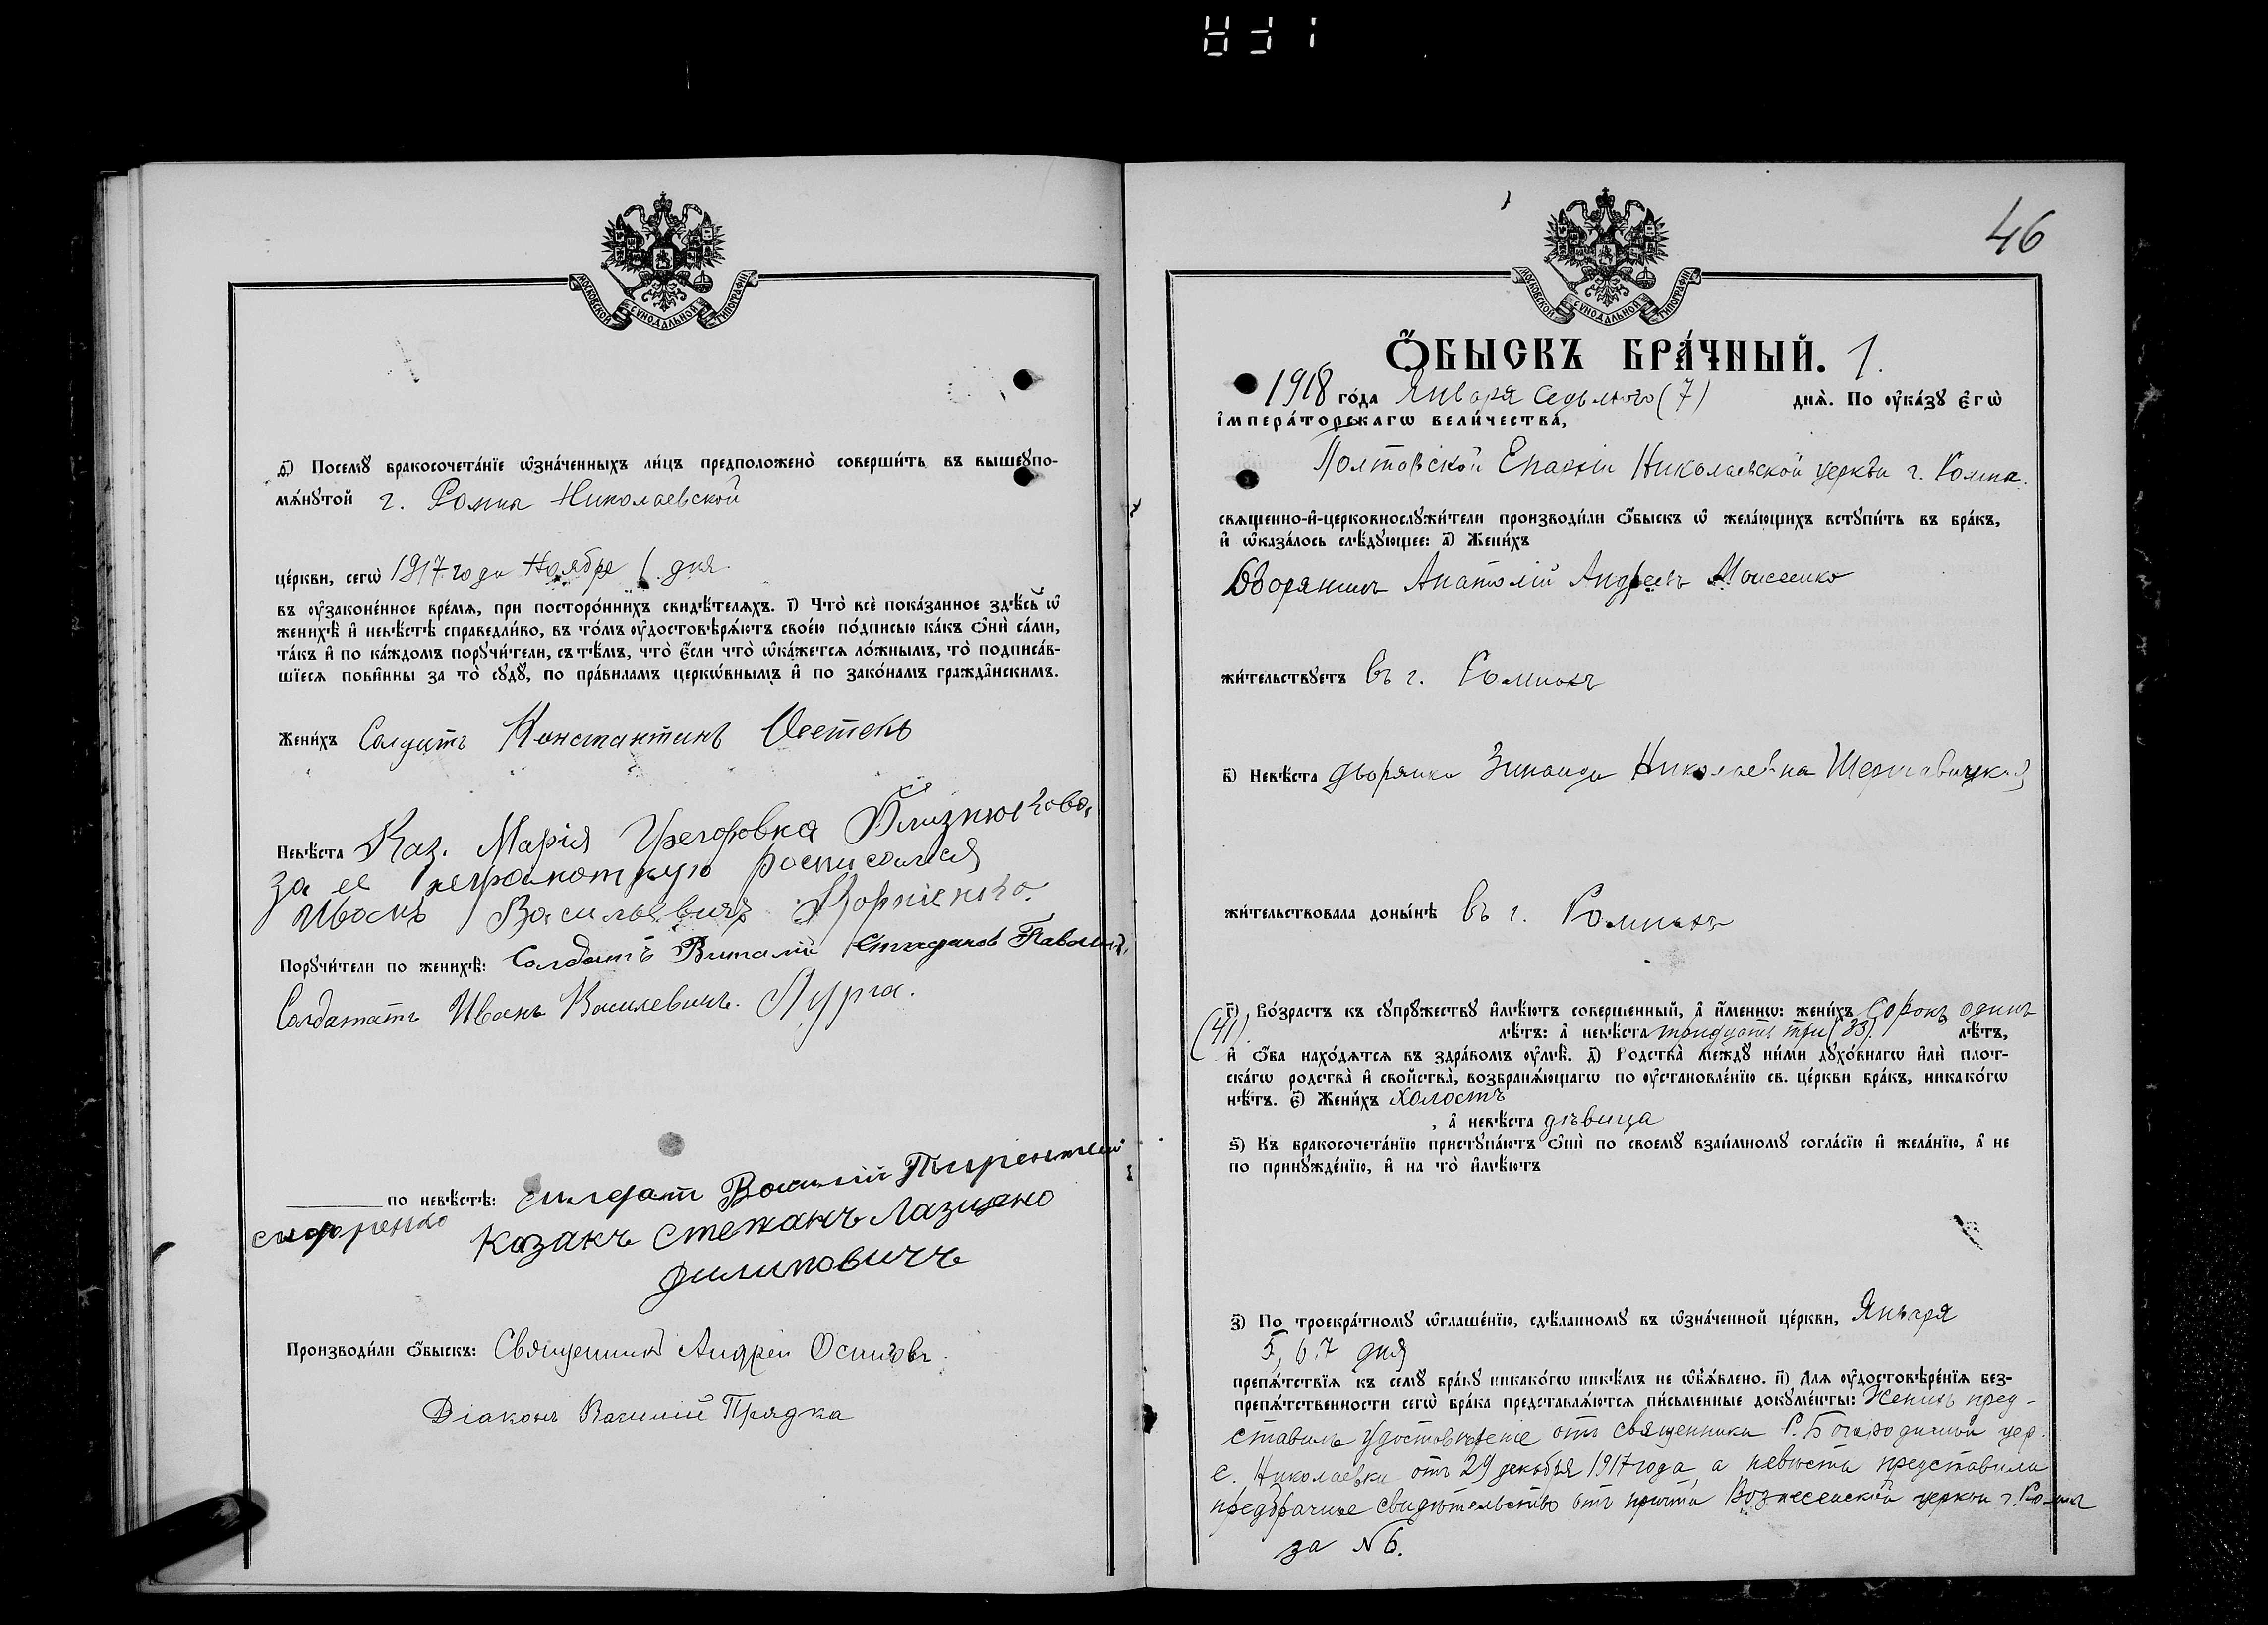 МОСКОВСКОЙ СУНОДАЛЬНОЙ ТИПОГРАФІИ
ѳ҃) Посемꙋ бракосочета́нїе ѡ҆зна́ченныхъ ли́цъ предположено̀ соверши́ть въ вышеꙋпо-
мѧ́нꙋтой г. Ромна Николаевской
це́ркви, сегѡ̀ 1917 года Ноября 1 дня
въ ᲂу҆зако́ненное вре́мѧ, при посторо́ннихъ свидѣ́телѧхъ. і҃) Что̀ всѐ пока́занное здѣ́сь ѡ҆
женихѣ̀ и҆ невѣ́стѣ справедли́во, въ то́мъ ᲂу҆достовѣрѧ́ютъ свое́ю по́дписью ка́къ ѻ҆нѝ са́ми,
та́къ и҆ по ка́ждомъ порꙋчи́тели, съ тѣ́мъ, что̀ є҆́сли что̀ ѡ҆ка́жетсѧ ло́жнымъ, то̀ подписа́в-
шїесѧ пови́нны за то̀ сꙋдꙋ̀, по пра́виламъ церко́внымъ и҆ по зако́намъ гражда́нскимъ.
Жени́хъ Солдатъ Константинъ
Невѣ́ста Каз. Марія Григоровна
за ее неграмотную росписался
Иванъ Васильевичъ Корніенко.
Порꙋчи́тели по женихѣ̀: Солдатъ Виталій
Солдатъ Иванъ Василевичъ Лурга.
по невѣ́стѣ: солдат Василий
Казакъ Степанъ Лазиренко
Филиповичъ
Производи́ли ѻ҆́быскъ: Священникъ Андрей Осиповъ
Діаконъ Василій Прядка
46
МОСКОВСКОЙ СУНОДАЛЬНОЙ ТИПОГРАФІИ
Ѻ҆́БЫСКЪ БРА́ЧНЫЙ. 1.
1918 го́да Января седьмого (7) днѧ̀. По ᲂу҆ка́зꙋ є҆гѡ̀
і҆мпера́торскагѡ вели́чества,
Полтавской Епархіи Николаевской церкви г. Ромна.
свѧщенно-и҆-церковнослꙋжи́тели производи́ли ѻ҆́быскъ ѡ҆ жела́ющихъ встꙋпи́ть въ бра́къ,
и҆ ѡ҆каза́лось слѣ́дꙋющее: а҃) Жени́хъ
Дворянинъ Анатолій Андреевъ Моисеенко
жи́тельствꙋетъ въ г. Ромнахъ
в҃) Невѣ́ста дворянка Зинаида Николаевна
жи́тельствовала доны́нѣ въ г. Ромнахъ
г҃) Во́зрастъ къ сꙋпрꙋ́жествꙋ и҆мѣ́ютъ соверше́нный, а҆ и҆́меннѡ: жени́хъ сорокъ одинъ
(41). лѣ́тъ: а҆ невѣ́ста тридцать три (33). лѣ́тъ,
и҆ ѻ҆́ба нахо́дѧтсѧ въ здра́вомъ ᲂу҆мѣ̀. д҃) Родства̀ междꙋ̀ ни́ми дꙋхо́внагѡ и҆лѝ плот-
ска́гѡ родства̀ и҆ свойства̀, возбранѧ́ющагѡ по ᲂу҆становле́нїю св. це́ркви бра́къ, никако́гѡ
нѣ́тъ. є҃) Жени́хъ холостъ
, а҆ невѣ́ста дѣвица
ѕ҃) Къ бракосочета́нїю пристꙋпа́ютъ ѻ҆нѝ по своемꙋ̀ взаи́мномꙋ согла́сїю и҆ жела́нїю, а҆ не
по принꙋжде́нїю, и҆ на то̀ и҆мѣ́ютъ
з҃) По троекра́тномꙋ ѡ҆глаше́нїю, сдѣ́ланномꙋ въ ѡ҆зна́ченной це́ркви, Января
5, 6, 7 дня
препѧ́тствїѧ къ семꙋ̀ бра́кꙋ никако́гѡ никѣ́мъ не ѡ҆б̾ѧ́влено. и҃) Длѧ ᲂу҆достовѣре́нїѧ без-
препѧ́тственности сегѡ̀ бра́ка представлѧ́ютсѧ пи́сьменные докꙋме́нты: Женихъ пред-
ставилъ удостовѣреніе отъ священника Р. Богородичной цер.
с. Николаевки отъ 29 декабря 1917 года, а невѣста представила
предбрачное свидѣтельство отъ причта Вознесенской церкви г. Ромна
за № 6.